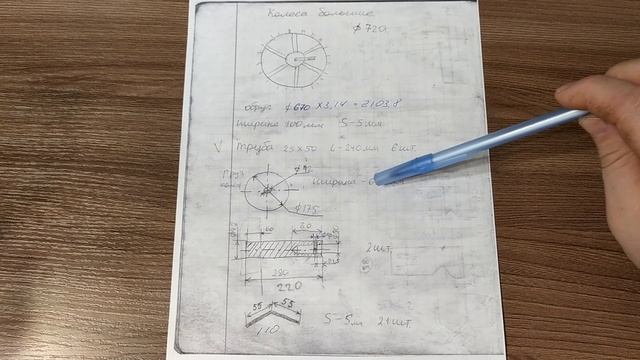 Колеса большие
ϕ 720
обруч ϕ670 х 3,14 = 2103,8
ширина 100мм S-5мм
V труба 25х50 L-240мм 6шт.
ширина - 6
ϕ175
60 80
2шт.
280
220
55 55
110
S-5мм 24шт.